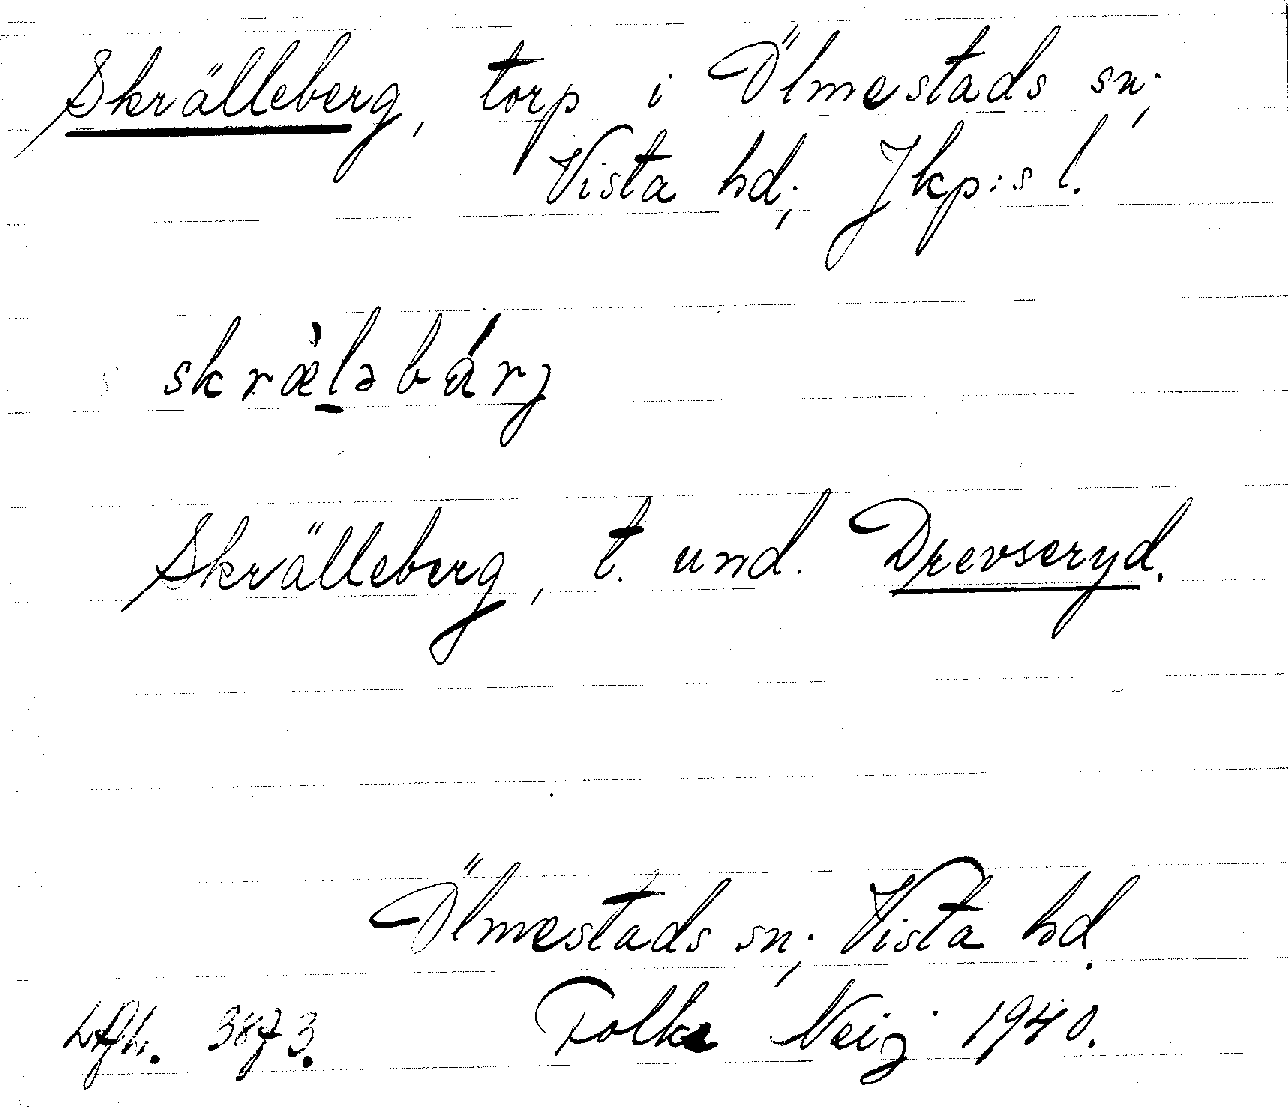 Skrälleberg, torp i Ölmestads sn;
Vista hd; Jkp:s l.
skræ̀ləbárj
Skrälleberg, t. und. Drevseryd.
Ölmestads sn; Vista hd.
3873. Folke Neij 1940.